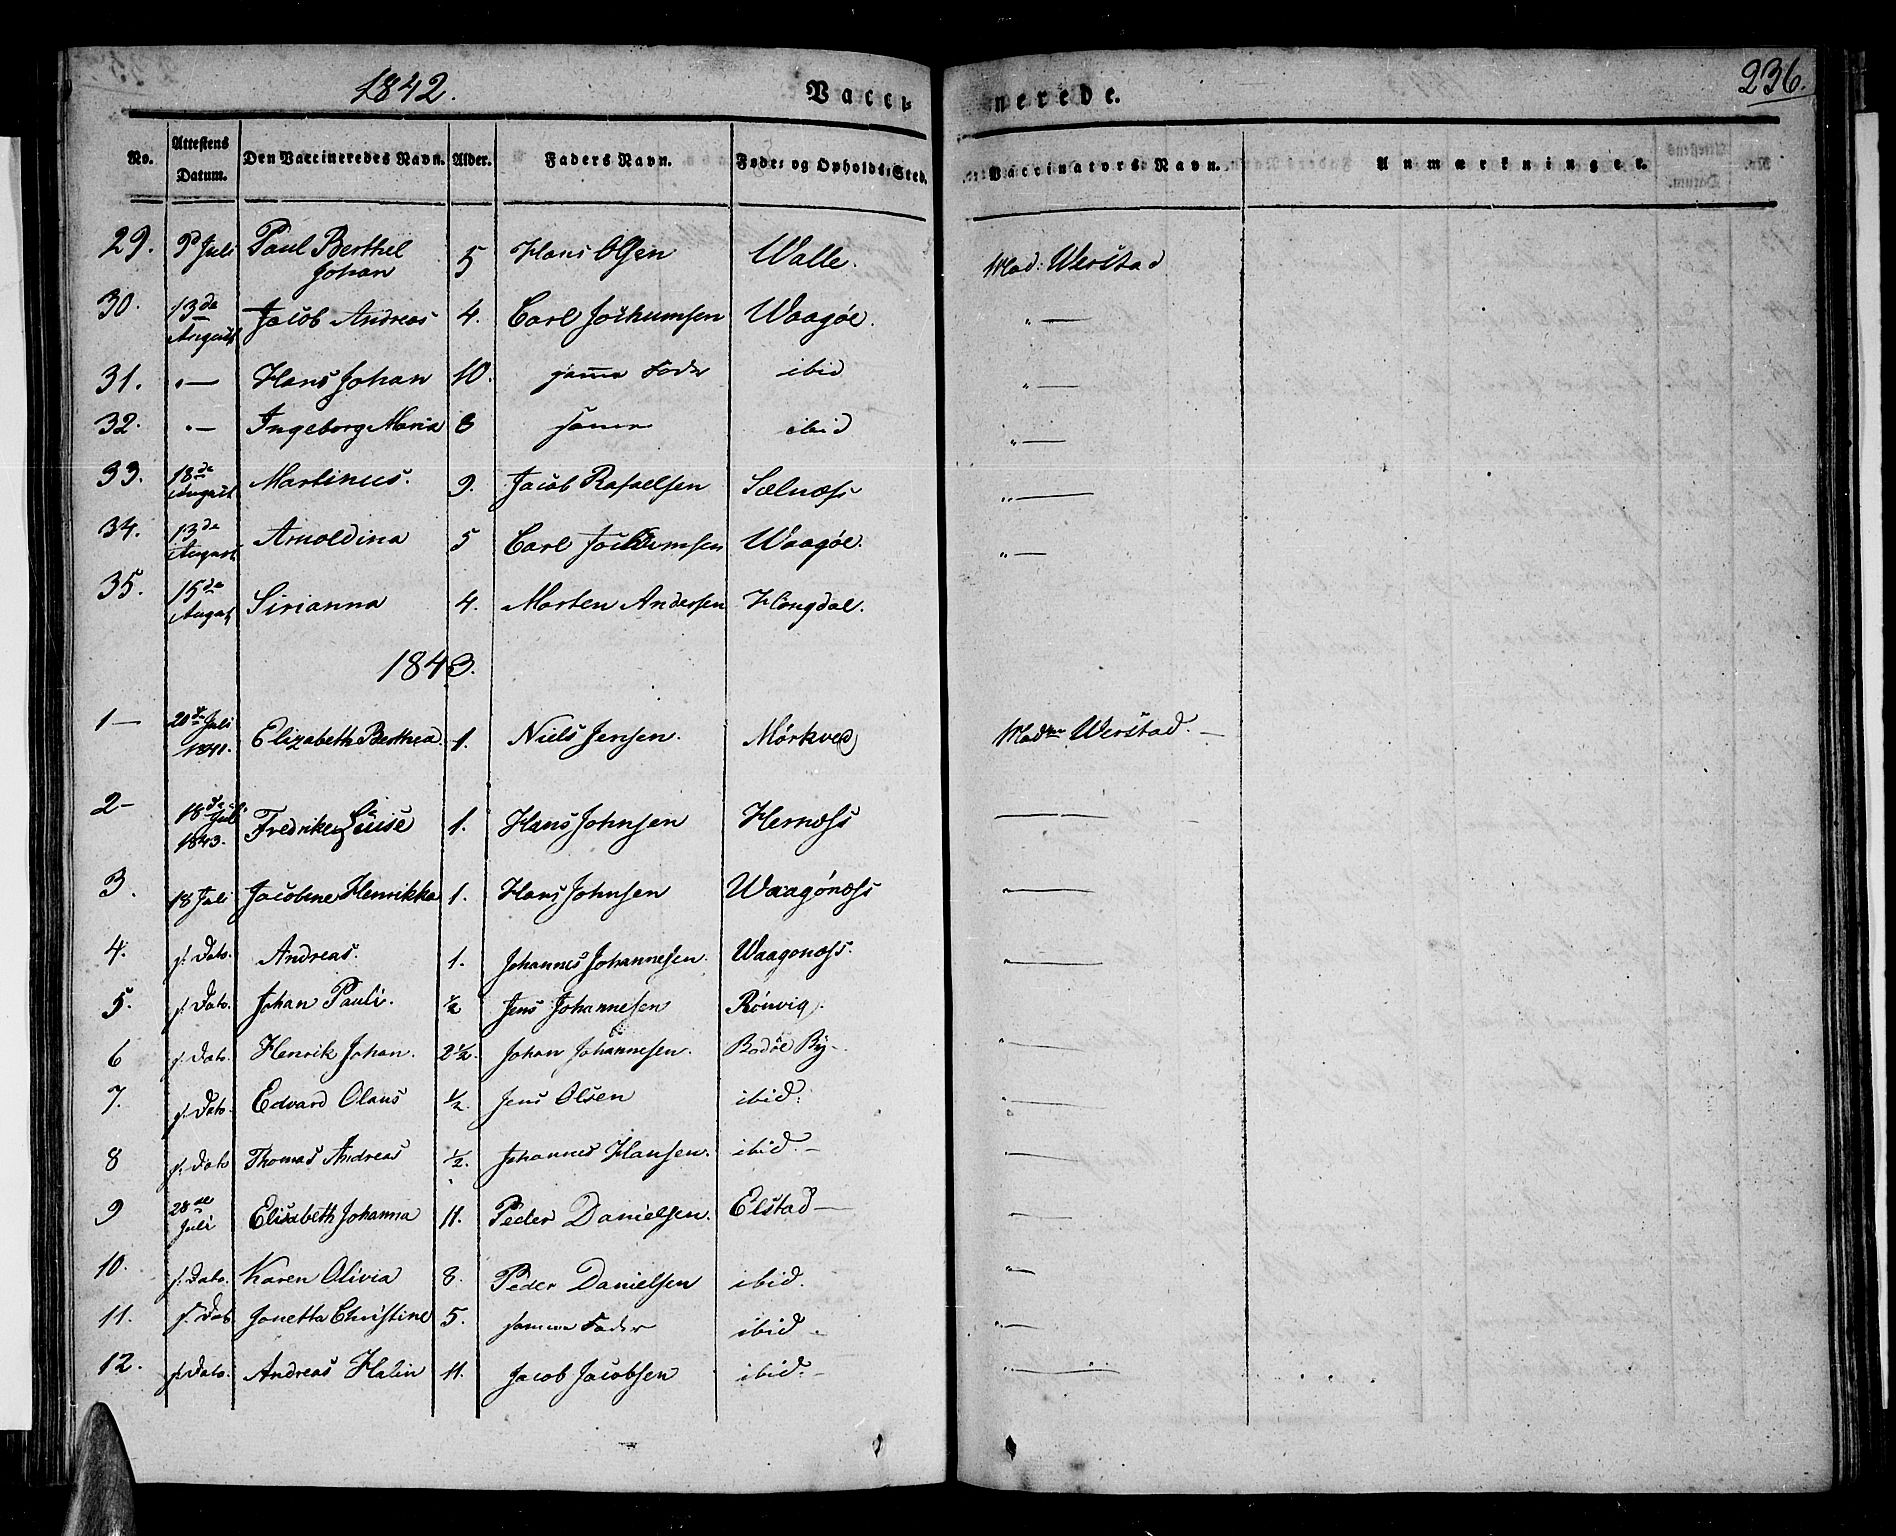 1842. Vacci- nerede. 236.
No. Attestens Datum. Den Vaccineredes Navn. Alder. Faders Navn. Føde- og Opholds-Sted. Vaccinators Navn. Anmærkninger.
29. 9d Juli Paul Berthel Johan 5 Hans Olsen Walle. Mad: Werstad
30. 13de August Jacob Andreas 4. Carl Jochumsen Waagøe. " —
31. " — Hans Johan 10. samme Fader ibid " —
32. " — Ingeborg Maria 8 samme ibid " —
33. 18de August Martinus. 9. Jacob Rafaelsen Sælnæss " —
34. 13de August Arnoldina 5 Carl Jochumsen Waagøe. " —
35. 15de August Sirianna 4. Morten Andersen Høngdal.
1843.
1 — 20de Juli 1841. Elizabeth Berthea 1. Niels Jensen. Mørkved Madme Werstad. —
2 - 18de Juli 1843. Fredrikke Louise 1. Hans Johnsen Hernæss —
3. 18 Juli Jacobine Henrikka 1. Hans Johnsen Waagønæss " —
4. s. Dato. Andreas. 1. Johannes Johannesen. Waagonæss. " —
5. s. Dato. Johan Pauli. ½ Jens Johannesen Rønvig.
6 s. Dato. Henrik Johan. 2½. Johan Johannesen. Bodøe By - " —
7. s. Dato. Edvard Olaus ½. Jens Olsen ibid. " —
8 s. Dato Thomas Andreas ½. Johannes Hansen. ibid. - " —
9 28de Juli Elisabeth Johanna 11. Peder Danielsen. Elstad — " —
10. s. Dato. Karen Olivia 8. Peder Danielsen ibid. " —
11. s. Dato Jonetta Christine 5. samme Fader ibid - " —
12. s. Dato. Andreas Halin 11. Jacob Jacobsen ibid. - " —